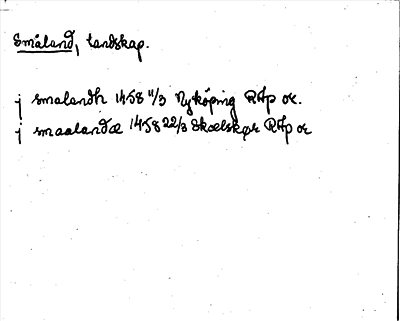 Småland, landskap.
j smalandh 1458 11/3 Nyköping RAp or.
j smaalandæ 1458 22/3 Skælskør RAp or